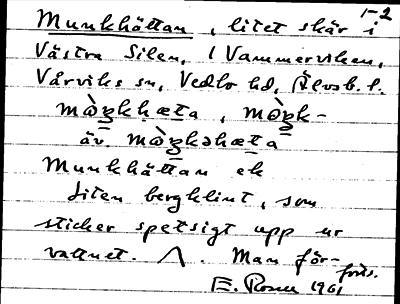 1-2
Munkhättan, litet skär i
Västra Silen, (Vammerviken,
Vårviks sn, Vedbo hd, Älvsb. l.
mò̱ŋkhæta, mò̱ŋk-
äv. mò̱ŋkəhæta
Munkhättan ek
liten bergklint, som
sticker spetsigt upp ur
vattnet. Λ. Man för-
forts.
E. Rosell 1961